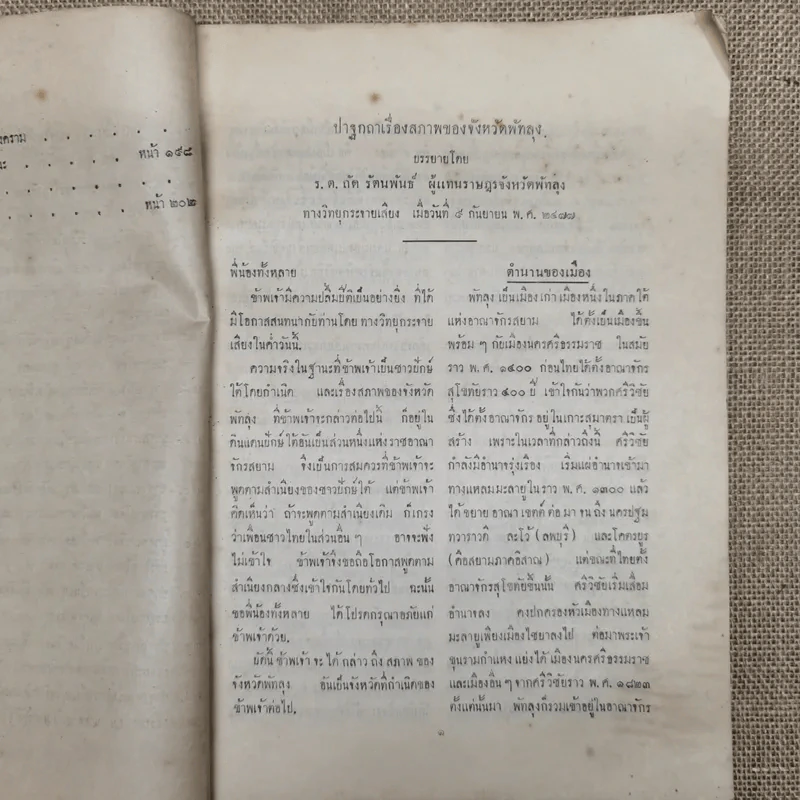 งคราม . . . . .
นะ . . . . หน้า ๑๙๘
. . . . .
. . . . หน้า ๒๐๒
ปาฐกถาเรื่องสภาพของจังหวัดพัทลุง
บรรยายโดย
ร. ต. ถัด รัตนพันธ์ ผู้แทนราษฎรจังหวัดพัทลุง
ทางวิทยุกระจายเสียง เมื่อวันที่ ๙ กันยายน พ. ศ. ๒๔๗๗
พี่น้องทั้งหลาย
ข้าพเจ้ามีความปลื้มปีติเป็นอย่างยิ่ง ที่ได้
มีโอกาสสนทนากับท่านโดย ทางวิทยุกระจาย
เสียงในค่ำวันนี้.
ความจริงในฐานะที่ข้าพเจ้าเป็นชาวปักษ์
ใต้โดยกำเนิด และเรื่องสภาพของจังหวัด
พัทลุง ที่ข้าพเจ้าจะกล่าวต่อไปนี้ ก็อยู่ใน
ดินแดนปักษ์ใต้อันเป็นส่วนหนึ่งแห่งราชอาณา
จักรสยาม จึงเป็นการสมควรที่ข้าพเจ้าจะ
พูดตามสำเนียงของชาวปักษ์ใต้ แต่ข้าพเจ้า
คิดเห็นว่า ถ้าจะพูดตามสำเนียงเดิม ก็เกรง
ว่าเพื่อนชาวไทยในส่วนอื่น ๆ อาจจะฟัง
ไม่เข้าใจ ข้าพเจ้าจึงขอถือโอกาสพูดตาม
สำเนียงกลางซึ่งเข้าใจกันโดยทั่วไป ฉะนั้น
ขอพี่น้องทั้งหลาย ได้โปรดกรุณาอภัยแก่
ข้าพเจ้าด้วย.
บัดนี้ ข้าพเจ้า จะ ได้ กล่าว ถึง สภาพ ของ
จังหวัดพัทลุง อันเป็นจังหวัดที่กำเนิดของ
ข้าพเจ้าต่อไป.
ตำนานของเมือง
พัทลุง เป็นเมือง เก่า เมืองหนึ่ง ในภาคใต้
แห่งอาณาจักรสยาม ได้ตั้งเป็นเมืองขึ้น
พร้อม ๆ กับเมืองนครศรีธรรมราช ในสมัย
ราว พ. ศ. ๑๔๐๐ ก่อนไทยได้ตั้งอาณาจักร
สุโขทัยราว ๔๐๐ ปี เข้าใจกันว่าพวกศรีวิชัย
ซึ่งได้ตั้งอาณาจักร อยู่ในเกาะสุมาตรา เป็นผู้
สร้าง เพราะในเวลาที่กล่าวถึงนี้ ศรีวิชัย
กำลังมีอำนาจรุ่งเรือง เริ่มแผ่อำนาจเข้ามา
ทางแหลมมะลายูในราว พ. ศ. ๑๓๐๐ แล้ว
ได้ ขยาย อาณา เขตต์ ต่อ มา จน ถึง นครปฐม
ทวาราวดี ละโว้ (ลพบุรี) และโคตรบูร
(คือสยามภาคอิสาณ) แต่ขณะที่ไทยตั้ง
อาณาจักรสุโขทัยขึ้นนั้น ศรีวิชัยเริ่มเสื่อม
อำนาจลง คงปกครองหัวเมืองทางแหลม
มะลายูเพียงเมืองไชยาลงไป ต่อมาพระเจ้า
ขุนรามกำแหง แย่งได้ เมืองนครศรีธรรมราช
และเมืองอื่น ๆ จากศรีวิชัยราว พ. ศ. ๑๘๒๓
ตั้งแต่นั้นมา พัทลุงก็รวมเข้าอยู่ในอาณาจักร
๑